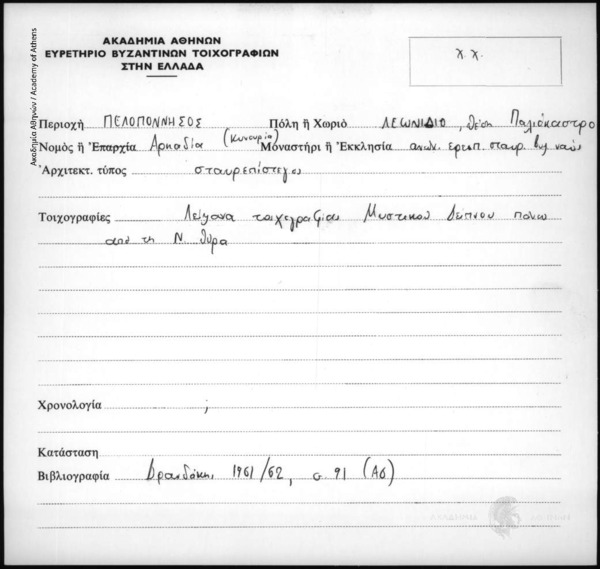 ΑΚΑΔΗΜΙΑ ΑΘΗΝΩΝ
ΕΥΡΕΤΗΡΙΟ ΒΥΖΑΝΤΙΝΩΝ ΤΟΙΧΟΓΡΑΦΙΩΝ
ΣΤΗΝ ΕΛΛΑΔΑ
χ.χ.
Ακαδημία Αθηνών / Academy of Athens
Περιοχὴ ΠΕΛΟΠΟΝΝΗΣΟΣ Πόλη ἢ Χωριὸ ΛΕΩΝΙΔΙΟ, θέση Παλιόκαστρο
Νομὸς ἢ Ἐπαρχία Αρκαδία (Κυνουρία) Μοναστήρι ἢ Ἐκκλησία ανων. ερειπ. σταυρ. βυζ ναός
Ἀρχιτεκτ. τύπος σταυρεπίστεγος
Τοιχογραφίες Λείψανα τοιχογραφίας Μυστικού Δείπνου πάνω
από τη Ν. θύρα
Χρονολογία ;
Κατάσταση
Βιβλιογραφία Δρανδάκης 1961/62, σ. 91 (ΑΔ)